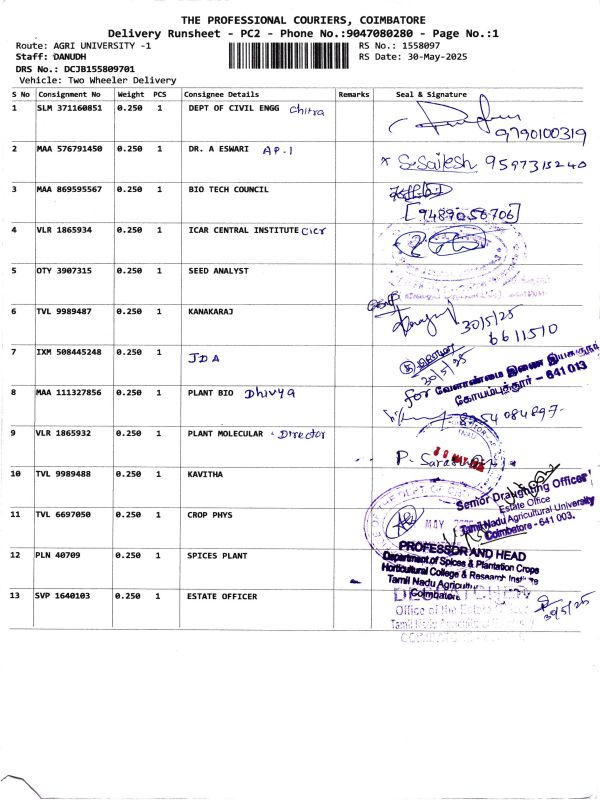 THE PROFESSIONAL COURIERS, COIMBATORE
Delivery Runsheet - PC2 - Phone No.:9047080280 - Page No.:1
Route: AGRI UNIVERSITY -1
RS No.: 1558097
Staff: DANUDH
RS Date: 30-May-2025
DRS No.: DCJB155809701
Vehicle: Two Wheeler Delivery
S No Consignment No Weight PCS Consignee Details Remarks Seal & Signature
1 SLM 371160851 0.250 1 DEPT OF CIVIL ENGG Chitra
9790100319
2 MAA 576791450 0.250 1 DR. A ESWARI AP-I
S. Sailesh 9597315240
3 MAA 869595567 0.250 1 BIO TECH COUNCIL
[9489056706]
4 VLR 1865934 0.250 1 ICAR CENTRAL INSTITUTE CICR
5 OTY 3907315 0.250 1 SEED ANALYST
6 TVL 9989487 0.250 1 KANAKARAJ
30/5/25
6611510
7 IXM 508445248 0.250 1 JDA
30/5/25
for வேளாண்மை இணை
கோயம்புத்தூர் - 641 013
8 MAA 111327856 0.250 1 PLANT BIO Dhivya
8954084897-
9 VLR 1865932 0.250 1 PLANT MOLECULAR - Director
P.
10 TVL 9989488 0.250 1 KAVITHA
Senior Draughting Officer
Estate Office
Tamil Nadu Agricultural University
Coimbatore - 641 003.
11 TVL 6697050 0.250 1 CROP PHYS
MAY
12 PLN 40709 0.250 1 SPICES PLANT
PROFESSOR AND HEAD
Department of Spices & Plantation Crops
Horticultural College & Research Institute
Tamil Nadu
Coimbatore
13 SVP 1640103 0.250 1 ESTATE OFFICER
Office of the Estate
Tamil Nadu
30/5/25